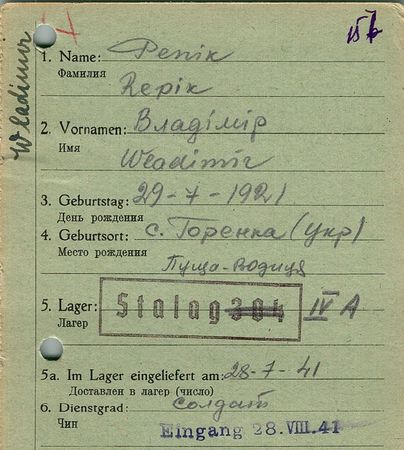 Wladimir
15b
1. Name: Репік
Фамилия
Repik
2. Vornamen: Владімір
Имя
Wladimir
3. Geburtstag: 29-7-1921
День рождения
4. Geburtsort: с. Горенка (Укр)
Место рождения
Пуща-водиця
5. Lager: Stalag 304 IV A
Лагерь
5a. Im Lager eingeliefert am: 28-7-41
Доставлен в лагерь (число)
6. Dienstgrad: солдат
Чин
Eingang 28. VIII. 41